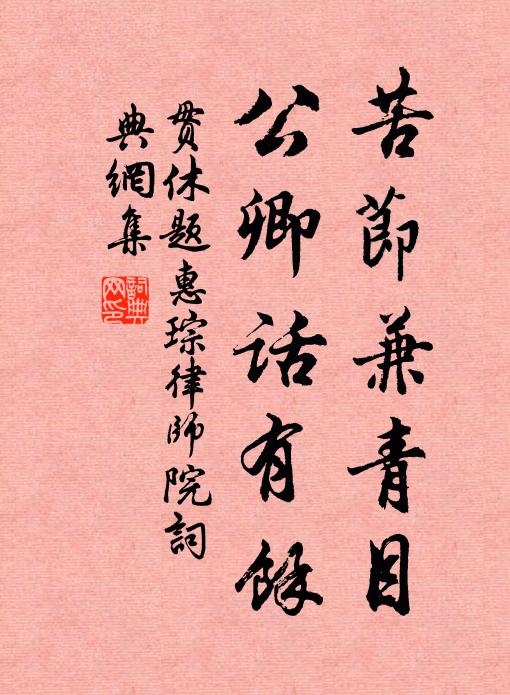 苦節兼青目
公卿話有餘
貫休題惠琮律師院詞
典網集
詞典
网印